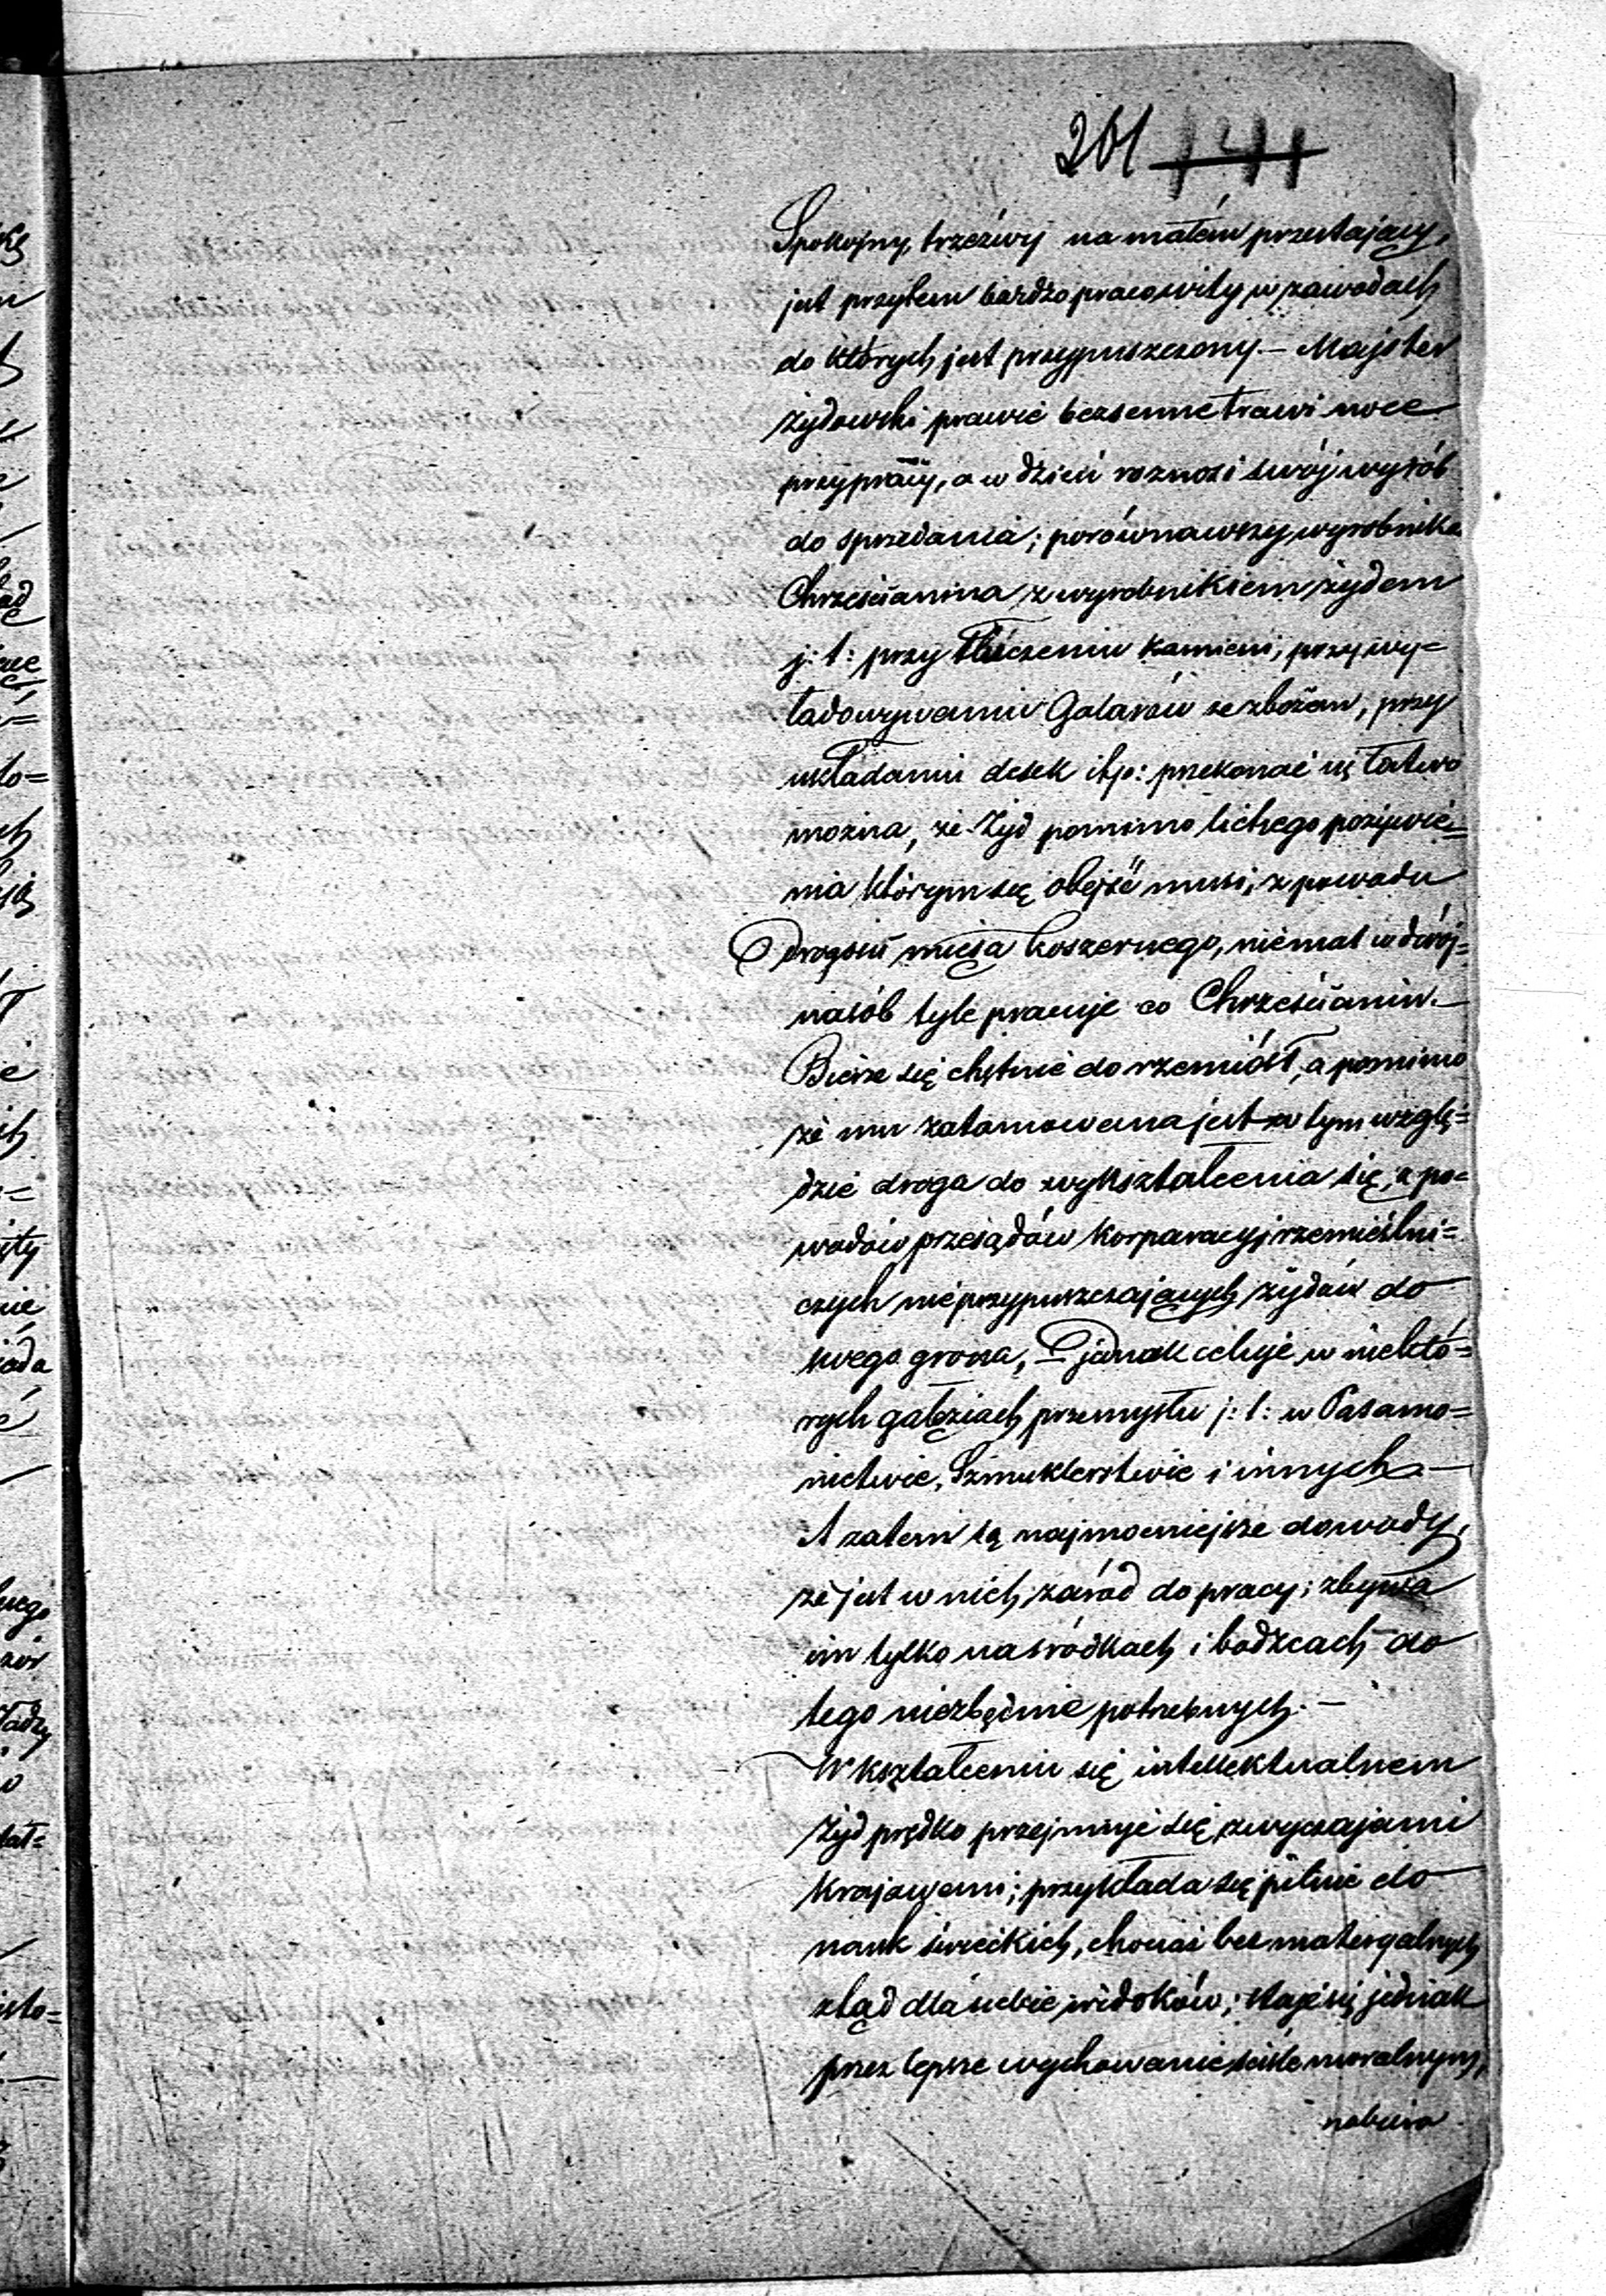 201 141
Spokojny, trzeźwy na małém przestający,
jest przytem bardzo pracowity w zawodach
do których jest przypuszczony. — Majster
żydowski prawie bezsenne trawi noce
przy pracy, a w dzień roznosi swój wyrób
do sprzedania; porównawszy wyrobnika
Chrześcianina z wyrobnikiem żydem
j: t: przy tłuczeniu kamieni, przy wy=
ładowywaniu Galarów ze zbożem, przy
układaniu desek itp: przekonać się łatwo
można, że Żyd pomimo lichego pożywie=
nia którym się obejść musi, z powodu
drogości mięsa koszernego, niemal w dwój=
nasób tyle pracuje co Chrześcianin. —
Bierze się chętnie do rzemiósł, a pomimo
że mu zatamowana jest w tym wzglę=
dzie droga do wykształcenia się, z po=
wodów przesądów korporacyj rzemieślni=
czych nieprzypuszczających żydów do
swego grona, jednak celuje w niektó=
rych gałęziach przemysłu j: t: w Pasamo=
nictwie, Szmuklerstwie i innych. —
A zatem są najmocniejsze dowody,
że jest w nich zaród do pracy; zbywa
im tylko na środkach i bodźcach do
tego niezbędnie potrzebnych. —
W kształceniu się intellektualnem
Żyd prędko przejmuje się zwyczajami
krajowemi; przykłada się pilnie do
nauk świeckich, chociaż bez materyalnych
ztąd dla siebie widoków; staje się jednak
przez lepsze wychowanie ściśle moralnym,
nabiera